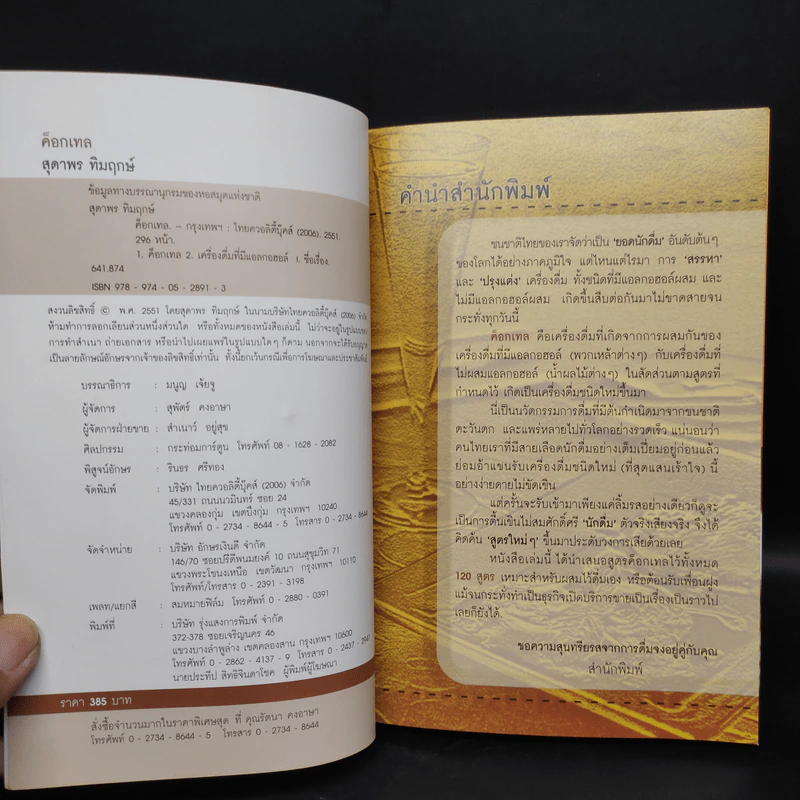 ค็อกเทล
สุดาพร ทิมฤกษ์
ข้อมูลทางบรรณานุกรมของหอสมุดแห่งชาติ
สุดาพร ทิมฤกษ์
ค็อกเทล. – กรุงเทพฯ : ไทยควอลิตี้บุ๊คส์ (2006), 2551.
296 หน้า.
1. ค็อกเทล 2. เครื่องดื่มที่มีแอลกอฮอล์ I. ชื่อเรื่อง.
641.874
ISBN 978 - 974 - 05 - 2891 - 3
สงวนลิขสิทธิ์ © พ.ศ. 2551 โดยสุดาพร ทิมฤกษ์ ในนามบริษัทไทยควอลิตี้บุ๊คส์ (2006) จำกัด
ห้ามทำการลอกเลียนส่วนหนึ่งส่วนใด หรือทั้งหมดของหนังสือเล่มนี้ ไม่ว่าจะอยู่ในรูปแบบของ
การทำสำเนา ถ่ายเอกสาร หรือนำไปเผยแพร่ในรูปแบบใดๆ ก็ตาม นอกจากจะได้รับอนุญาต
เป็นลายลักษณ์อักษรจากเจ้าของลิขสิทธิ์เท่านั้น ทั้งนี้ยกเว้นกรณีเพื่อการโฆษณาและประชาสัมพันธ์
บรรณาธิการ : มนูญ เจ้ยจู
ผู้จัดการ : สุพัตร์ คงอาษา
ผู้จัดการฝ่ายขาย : สำเนาว์ อยู่สุข
ศิลปกรรม : กระท่อมการ์ตูน โทรศัพท์ 08 - 1628 - 2082
พิสูจน์อักษร : รินธร ศรีทอง
จัดพิมพ์ : บริษัท ไทยควอลิตี้บุ๊คส์ (2006) จำกัด
45/331 ถนนนวมินทร์ ซอย 24
แขวงคลองกุ่ม เขตบึงกุ่ม กรุงเทพฯ 10240
โทรศัพท์ 0 - 2734 - 8644 - 5 โทรสาร 0 - 2734 - 8644
จัดจำหน่าย : บริษัท อักษรเงินดี จำกัด
146/70 ซอยปรีดีพนมยงค์ 10 ถนนสุขุมวิท 71
แขวงพระโขนงเหนือ เขตวัฒนา กรุงเทพฯ 10110
โทรศัพท์/โทรสาร 0 - 2391 - 3198
เพลท/แยกสี : สมหมายฟิล์ม โทรศัพท์ 0 - 2880 - 0391
พิมพ์ที่ : บริษัท รุ่งแสงการพิมพ์ จำกัด
372-378 ซอยเจริญนคร 46
แขวงบางลำพูล่าง เขตคลองสาน กรุงเทพฯ 10600
โทรศัพท์ 0 - 2862 - 4137 - 9 โทรสาร 0 - 2437 - 2947
นายประทีป สิทธิจินดาโชค ผู้พิมพ์ผู้โฆษณา
ราคา 385 บาท
สั่งซื้อจำนวนมากในราคาพิเศษสุด ที่ คุณรัตนา คงอาษา
โทรศัพท์ 0 - 2734 - 8644 - 5 โทรสาร 0 - 2734 - 8644
คำนำสำนักพิมพ์
ชนชาติไทยของเราจัดว่าเป็น 'ยอดนักดื่ม' อันดับต้นๆ
ของโลกได้อย่างภาคภูมิใจ แต่ไหนแต่ไรมา การ 'สรรหา'
และ 'ปรุงแต่ง' เครื่องดื่ม ทั้งชนิดที่มีแอลกอฮอล์ผสม และ
ไม่มีแอลกอฮอล์ผสม เกิดขึ้นสืบต่อกันมาไม่ขาดสายจน
กระทั่งทุกวันนี้
ค็อกเทล คือเครื่องดื่มที่เกิดจากการผสมกันของ
เครื่องดื่มที่มีแอลกอฮอล์ (พวกเหล้าต่างๆ) กับเครื่องดื่มที่
ไม่ผสมแอลกอฮอล์ (น้ำผลไม้ต่างๆ) ในสัดส่วนตามสูตรที่
กำหนดไว้ เกิดเป็นเครื่องดื่มชนิดใหม่ขึ้นมา
นี่เป็นนวัตกรรมการดื่มที่มีต้นกำเนิดมาจากชนชาติ
ตะวันตก และแพร่หลายไปทั่วโลกอย่างรวดเร็ว แน่นอนว่า
คนไทยเราที่มีสายเลือดนักดื่มอย่างเต็มเปี่ยมอยู่ก่อนแล้ว
ย่อมอ้าแขนรับเครื่องดื่มชนิดใหม่ (ที่สุดแสนเร้าใจ) นี้
อย่างง่ายดายไม่ขัดเขิน
แต่ครั้นจะรับเข้ามาเพียงแค่ลิ้มรสอย่างเดียวก็ดูจะ
เป็นการตื้นเขินไม่สมศักดิ์ศรี 'นักดื่ม' ตัวจริงเสียงจริง จึงได้
คิดค้น 'สูตรใหม่ๆ' ขึ้นมาประดับวงการเสียด้วยเลย
หนังสือเล่มนี้ ได้นำเสนอสูตรค็อกเทลไว้ทั้งหมด
120 สูตร เหมาะสำหรับผสมไว้ดื่มเอง หรือต้อนรับเพื่อนฝูง
แม้จนกระทั่งทำเป็นธุรกิจเปิดบริการขายเป็นเรื่องเป็นราวไป
เลยก็ยังได้.
ขอความสุนทรียรสจากการดื่มจงอยู่คู่กับคุณ
สำนักพิมพ์